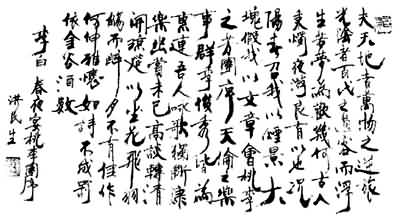 夫天地者萬物之逆旅
光陰者百代之過客而浮
生若夢為歡幾何古人
秉燭夜遊良有以也況
陽春召我以煙景大
塊假我以文章會桃李
之芳園序天倫之樂
事群季俊秀皆為
惠連吾人咏歌獨慚康
樂幽賞未已高談轉清
開瓊筵以坐花飛羽
觴而醉月不有佳作
何伸雅懷如詩不成罰
依金谷酒數
李白春夜宴桃李園序
洪民生